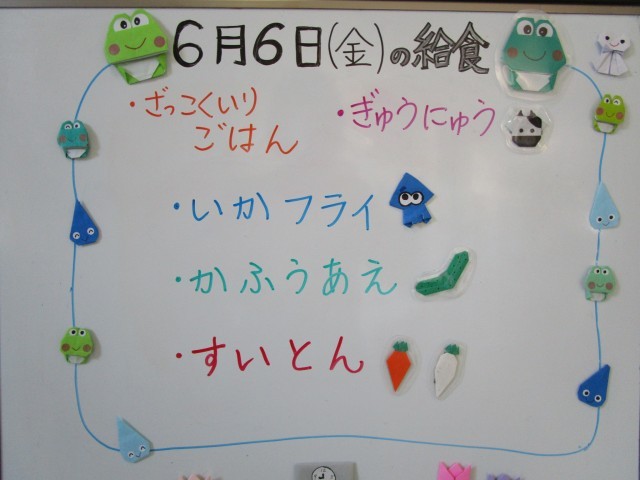 6月6日(金)の給食
・ざっこくいり
ごはん
・ぎゅうにゅう
・いかフライ
・かふうあえ
・すいとん